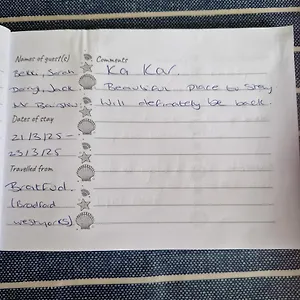 Names of guest(s)
Comments
Bekki, Sarah
Ka Kar.
Darryl, Jack
Beautiful place to stay
Mr Bairstow
Will definately be back.
Dates of stay
21/3/25 -
23/3/25
Travelled from
Bratfud.
(Bradford
westyorks)